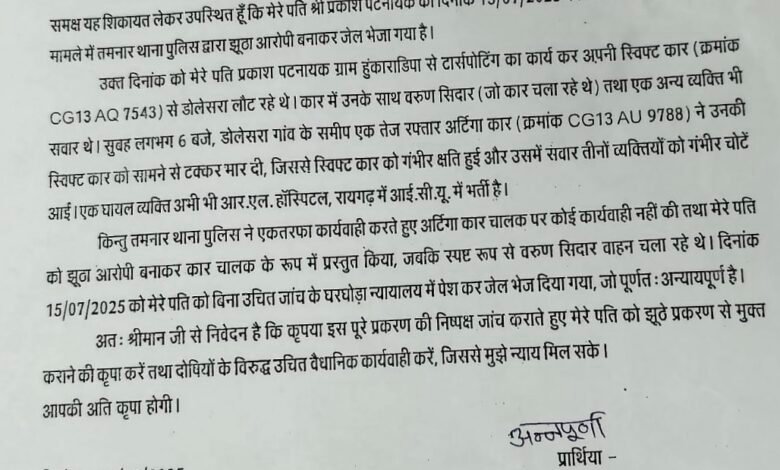 समक्ष यह शिकायत लेकर उपस्थित हूँ कि मेरे पति श्री प्रकाश पटनायक को दिनांक 15/07/2025
मामले में तमनार थाना पुलिस द्वारा झूठा आरोपी बनाकर जेल भेजा गया है।
उक्त दिनांक को मेरे पति प्रकाश पटनायक ग्राम हुंकाराडिपा से टार्सपोटिंग का कार्य कर अपनी स्विफ्ट कार (क्रमांक
CG13 AQ 7543) से डोलेसरा लौट रहे थे। कार में उनके साथ वरुण सिदार (जो कार चला रहे थे) तथा एक अन्य व्यक्ति भी
सवार थे। सुबह लगभग 6 बजे, डोलेसरा गांव के समीप एक तेज रफ्तार अर्टिगा कार (क्रमांक CG13 AU 9788) ने उनकी
स्विफ्ट कार को सामने से टक्कर मार दी, जिससे स्विफ्ट कार को गंभीर क्षति हुई और उसमें सवार तीनों व्यक्तियों को गंभीर चोटें
आईं। एक घायल व्यक्ति अभी भी आर.एल. हॉस्पिटल, रायगढ़ में आई.सी.यू. में भर्ती है।
किन्तु तमनार थाना पुलिस ने एकतरफा कार्यवाही करते हुए अर्टिगा कार चालक पर कोई कार्यवाही नहीं की तथा मेरे पति
को झूठा आरोपी बनाकर कार चालक के रूप में प्रस्तुत किया, जबकि स्पष्ट रूप से वरुण सिदार वाहन चला रहे थे। दिनांक
15/07/2025 को मेरे पति को बिना उचित जांच के घरघोड़ा न्यायालय में पेश कर जेल भेज दिया गया, जो पूर्णतः अन्यायपूर्ण है।
अतः श्रीमान जी से निवेदन है कि कृपया इस पूरे प्रकरण की निष्पक्ष जांच कराते हुए मेरे पति को झूठे प्रकरण से मुक्त
कराने की कृपा करें तथा दोषियों के विरुद्ध उचित वैधानिक कार्यवाही करें, जिससे मुझे न्याय मिल सके।
आपकी अति कृपा होगी।
अन्नपूर्णा
प्रार्थिया –